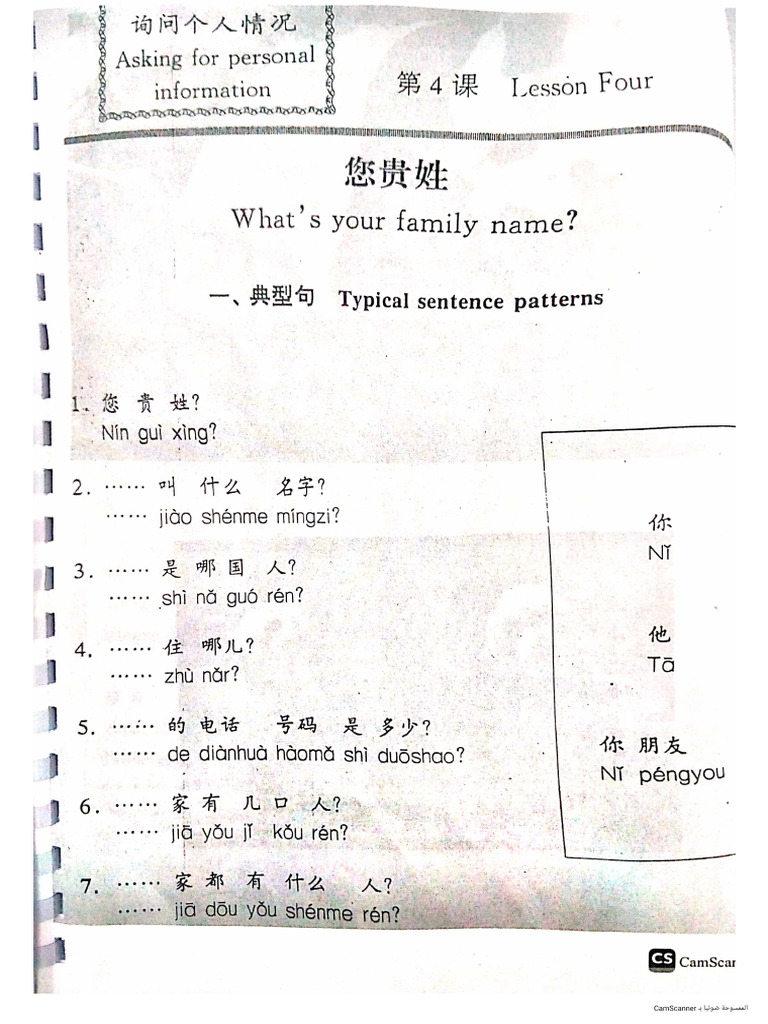 询问个人情况
Asking for personal
information
第 4 课 Lesson Four
您贵姓
What's your family name?
一、典型句 Typical sentence patterns
1. 您 贵 姓?
Nín guì xìng?
2. …… 叫 什么 名字?
…… jiào shénme míngzi?
3. …… 是 哪 国 人?
…… shì nǎ guó rén?
4. …… 住 哪儿?
…… zhù nǎr?
5. …… 的 电话 号码 是 多少?
…… de diànhuà hàomǎ shì duōshao?
6. …… 家 有 几 口 人?
…… jiā yǒu jǐ kǒu rén?
7. …… 家 都 有 什么 人?
…… jiā dōu yǒu shénme rén?
你
Nǐ
他
Tā
你 朋友
Nǐ péngyou
CS CamScar
الممسوحة ضوئيا بـ CamScanner